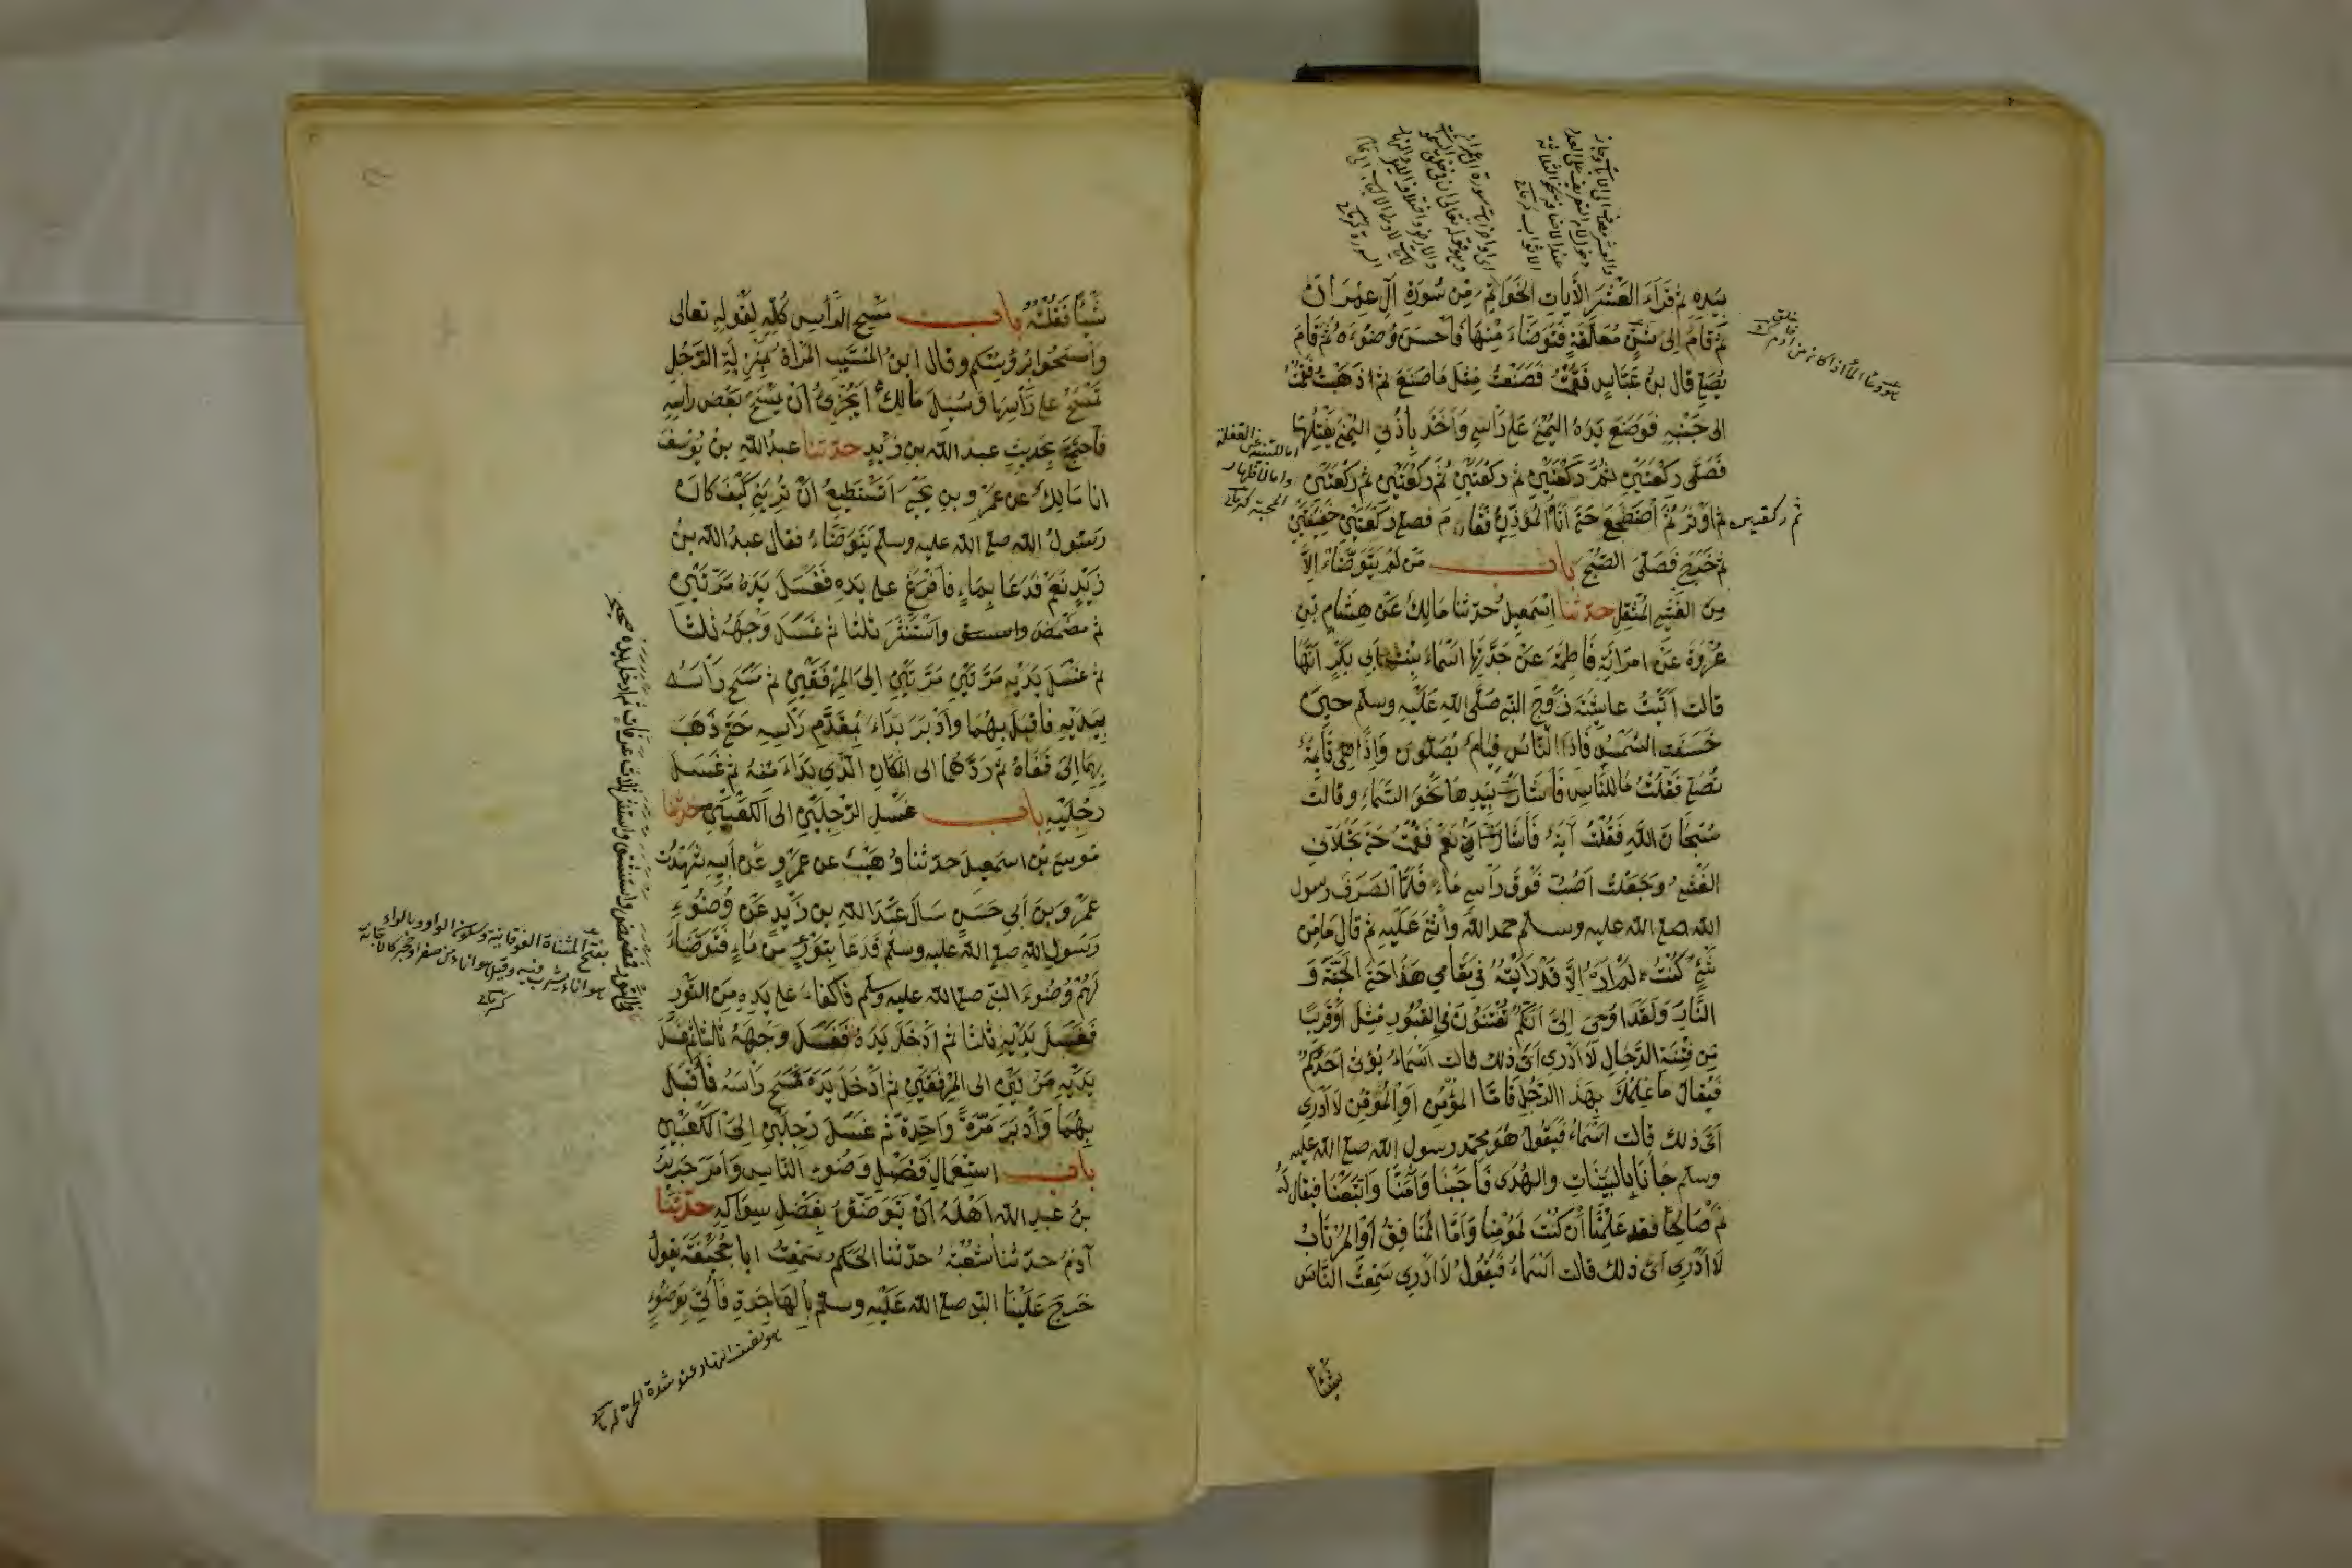 بيده ثم قرأ العشر الآيات الخواتم من سورة آل عمران
ثم قام الى شن معلقة فتوضاء منها فأحسن وضوءه ثم قام
يصلي قال بن عباس فقمت فصنعت مثل ما صنع ثم ذهبت فقمت
الى جنبه فوضع يده اليمنى على رأسي وأخذ بأذني اليمنى يفتلها
فصلى ركعتين ثم ركعتين ثم ركعتين ثم ركعتين ثم ركعتين
ثم ركعتين
ثم اوتر ثم اضطجع حتى اتاه المؤذن فقام فصلى ركعتين خفيفتين
ثم خرج فصلى الصبح باب من لم يتوضاء الا
من الغشي المثقل حدثنا اسمعيل حدثنا مالك عن هشام بن
عروة عن امرأته فاطمة عن جدتها اسماء بنت ابي بكر انها
قالت أتيت عايشة زوج النبي صلى الله عليه وسلم حين
خسفت الشمس فاذا الناس قيام يصلون واذا هي قائمة
تصلي فقلت ما للناس فأشارت بيدها نحو السماء وقالت
سبحان الله فقلت آية فأشارت ان نعم فقمت حتى تجلاني
الغشي وجعلت اصب فوق رأسي ماء فلما انصرف رسول
الله صلى الله عليه وسلم حمد الله وأثنى عليه ثم قال ما من
شئ كنت لم اره الا قد رأيته في مقامي هذا حتى الجنة و
النار ولقد اوحى الي انكم تفتنون في القبور مثل او قريبا
من فتنة الدجال لا ادري اي ذلك قالت اسماء يؤتى احدكم
فيقال ما علمك بهذا الرجل فاما المؤمن او الموقن لا ادري
اي ذلك قالت اسماء فيقول هو محمد رسول الله صلى الله عليه
وسلم جاءنا بالبينات والهدى فأجبنا وآمنا واتبعنا فيقال له
نم صالحا فقد علمنا ان كنت لمؤمنا وأما المنافق او المرتاب
لا ادري اي ذلك قالت اسماء فيقول لا ادري سمعت الناس
شيئا
شيئا فقلته باب مسح الرأس كله لقوله تعالى
وامسحوا برؤسكم وقال ابن المسيب المرأة بمنزلة الرجل
تمسح على رأسها وسئل مالك أيجزئ ان يمسح بعض رأسه
فاحتج بحديث عبد الله بن زيد حدثنا عبد الله بن يوسف
انا مالك عن عمرو بن يحيى اتستطيع ان تريني كيف كان
رسول الله صلى الله عليه وسلم يتوضاء فقال عبد الله بن
زيد نعم فدعا بماء فأفرغ على يده فغسل يده مرتين
ثم مضمض واستنثر ثلثا ثم غسل وجهه ثلثا
ثم غسل يديه مرتين مرتين الى المرفقين ثم مسح رأسه
بيديه فأقبل بهما وأدبر بداء بمقدم رأسه حتى ذهب
بهما الى قفاه ثم ردهما الى المكان الذي بداء منه ثم غسل
رجليه باب غسل الرجلين الى الكعبين حدثنا
موسى بن اسمعيل حدثنا وهيب عن عمرو عن ابيه شهدت
عمرو بن ابي حسن سأل عبد الله بن زيد عن وضوء
رسول الله صلى الله عليه وسلم فدعا بتور من ماء فتوضاء
لهم وضوء النبي صلى الله عليه وسلم فأكفاء على يده من التور
فغسل يديه ثلثا ثم ادخل يده فغسل وجهه ثلثا ثم غسل
يديه مرتين الى المرفقين ثم ادخل يده فمسح رأسه فأقبل
بهما وأدبر مرة واحدة ثم غسل رجليه الى الكعبين
باب استعمال فضل وضوء الناس وأمر جرير
بن عبد الله اهله ان يتوضؤا بفضل سواكه حدثنا
آدم حدثنا شعبة حدثنا الحكم سمعت ابا جحيفة يقول
خرج علينا النبي صلى الله عليه وسلم بالهاجرة فأتي بوضوء
هو نصف النهار عند شدة الحر
بفتح المثناة الفوقانية وسكون الواو وبالراء
هو اناء يشرب فيه وقيل هو اناء من صفر او حجر كالاجانة